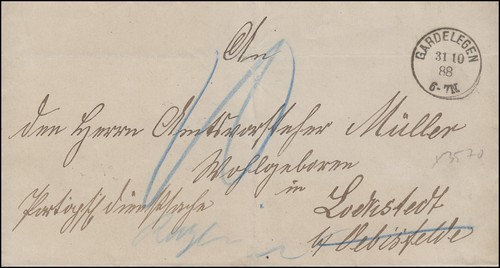 An
GARDELEGEN
31 10
88
6-7N
den Herrn Amtsvorsteher Müller
Wohlgeboren
in
Lockstedt
b/ Oebisfelde
Portopfl Dienstsache